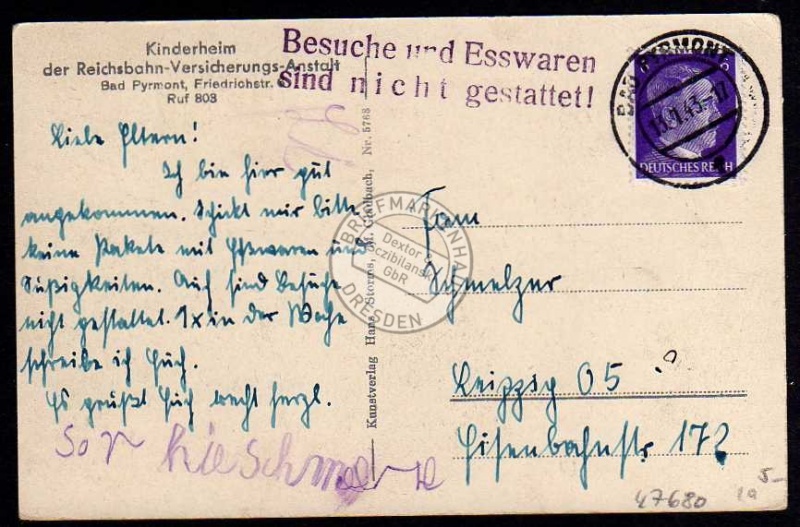 Kinderheim
der Reichsbahn-Versicherungs-Anstalt
Bad Pyrmont, Friedrichstr.
Ruf 803
Besuche und Esswaren
sind nicht gestattet!
BAD PYRMONT
DEUTSCHES REICH
Liebe Eltern!
Ich bin hier gut
angekommen. Schickt mir bitte
keine Pakete mit Eßwaren und
Süßigkeiten. Auch sind Besuche
nicht gestattet. 1x in der Woche
schreibe ich Euch.
Es grüßt Euch recht herzl.
Kunstverlag Hans Storms, M. Gladbach, Nr. 5768
Fam
Schmelzer
Leipzig O5
Eisenbahnstr. 172
BRIEFMARKENHA
Dextor &
Sczibilanski
GbR
DRESDEN
47680
5-